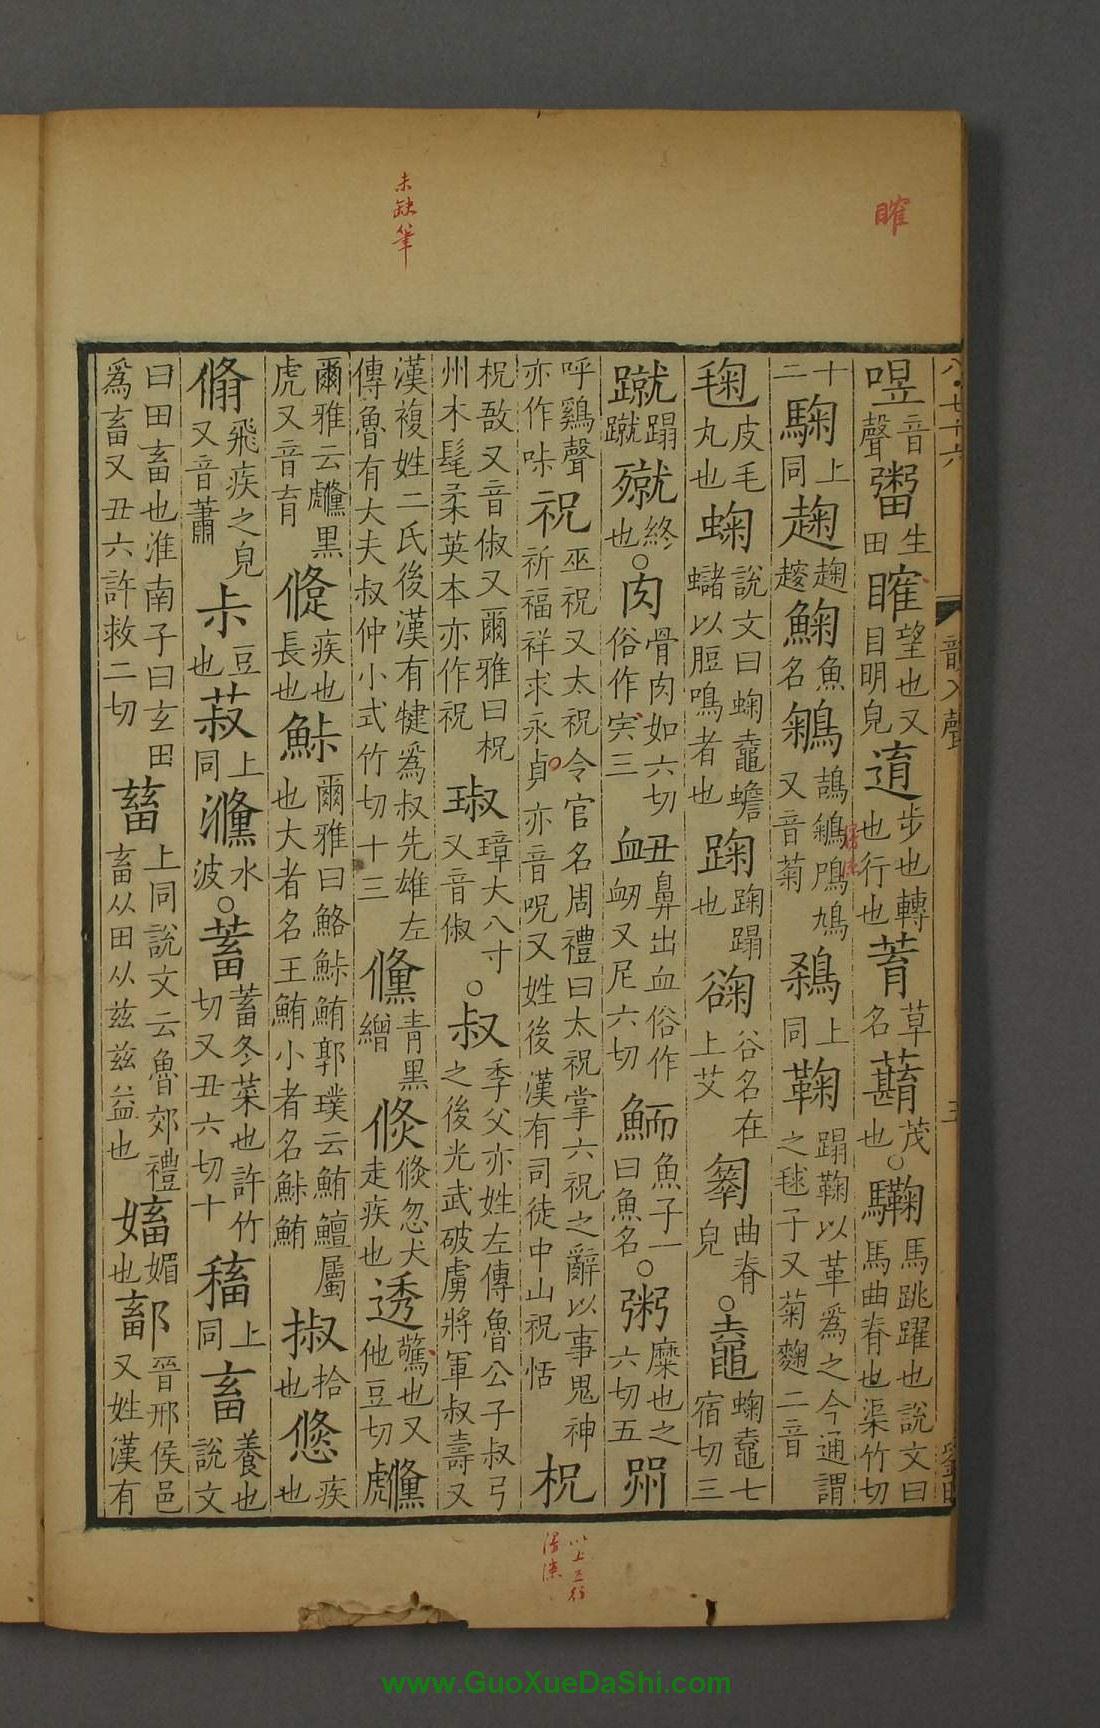 睢
未缺筆
喅音聲粥生田䧹望也又目明皃逳步也轉也行也蒮草名藡茂也○驧馬跳躍也說文曰馬曲脊也渠竹切
十二騊上同趜趜趢鮈魚名鵴鵠鵴鳲鳩又音菊鵴上同鞠蹋鞠以革爲之今通謂之毬子又菊麴二音
毱皮毛丸也蜠說文曰蜠鼀蟾蠩以脰鳴者也踘踘蹋也谻谷名在上艾䈮曲脊皃○鼀蜠鼀七宿切三
蹴蹋蹴殧終也○肉骨肉如六切俗作宍三衄丑鼻出血俗作衂又尼六切鮞魚子一曰魚名○粥糜也之六切五喌
呼鷄聲亦作味祝巫祝又太祝令官名周禮曰太祝掌六祝之辭以事鬼神祈福祥求永貞亦音呪又姓後漢有司徒中山祝恬柷
柷敔又音俶又爾雅曰柷州木髦柔英本亦作祝琡璋大八寸又音俶○叔季父亦姓左傳魯公子叔弓之後光武破虜將軍叔壽又
漢複姓二氏後漢有犍爲叔先雄左傳魯有大夫叔仲小式竹切十三儵青黑繒倏倏忽犬走疾也透驚也又他豆切虪
爾雅云虪黑虎又音育䟉疾也長也鮛爾雅曰鮥鮛鮪郭璞云鮪鱣屬也大者名王鮪小者名鮛鮪掓拾也㥤疾也
翛飛疾之皃又音蕭尗豆也菽上同瀿水波○蓄蓄冬菜也許竹切又丑六切十稸上同畜養也說文
曰田畜也淮南子曰玄田爲畜又丑六許救二切𤲸上同說文云魯郊禮畜从田从兹兹益也嬌媚也鄐晉邢侯邑又姓漢有
以上三行
漫漶
www.GuoXueDaShi.com